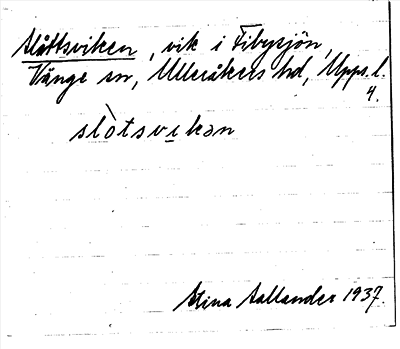 Slåttsviken, vik i Fibysjön,
Vänge sn, Ulleråkers hd, Upps. l.
4.
slòtsvikən
Stina Aallander 1937.